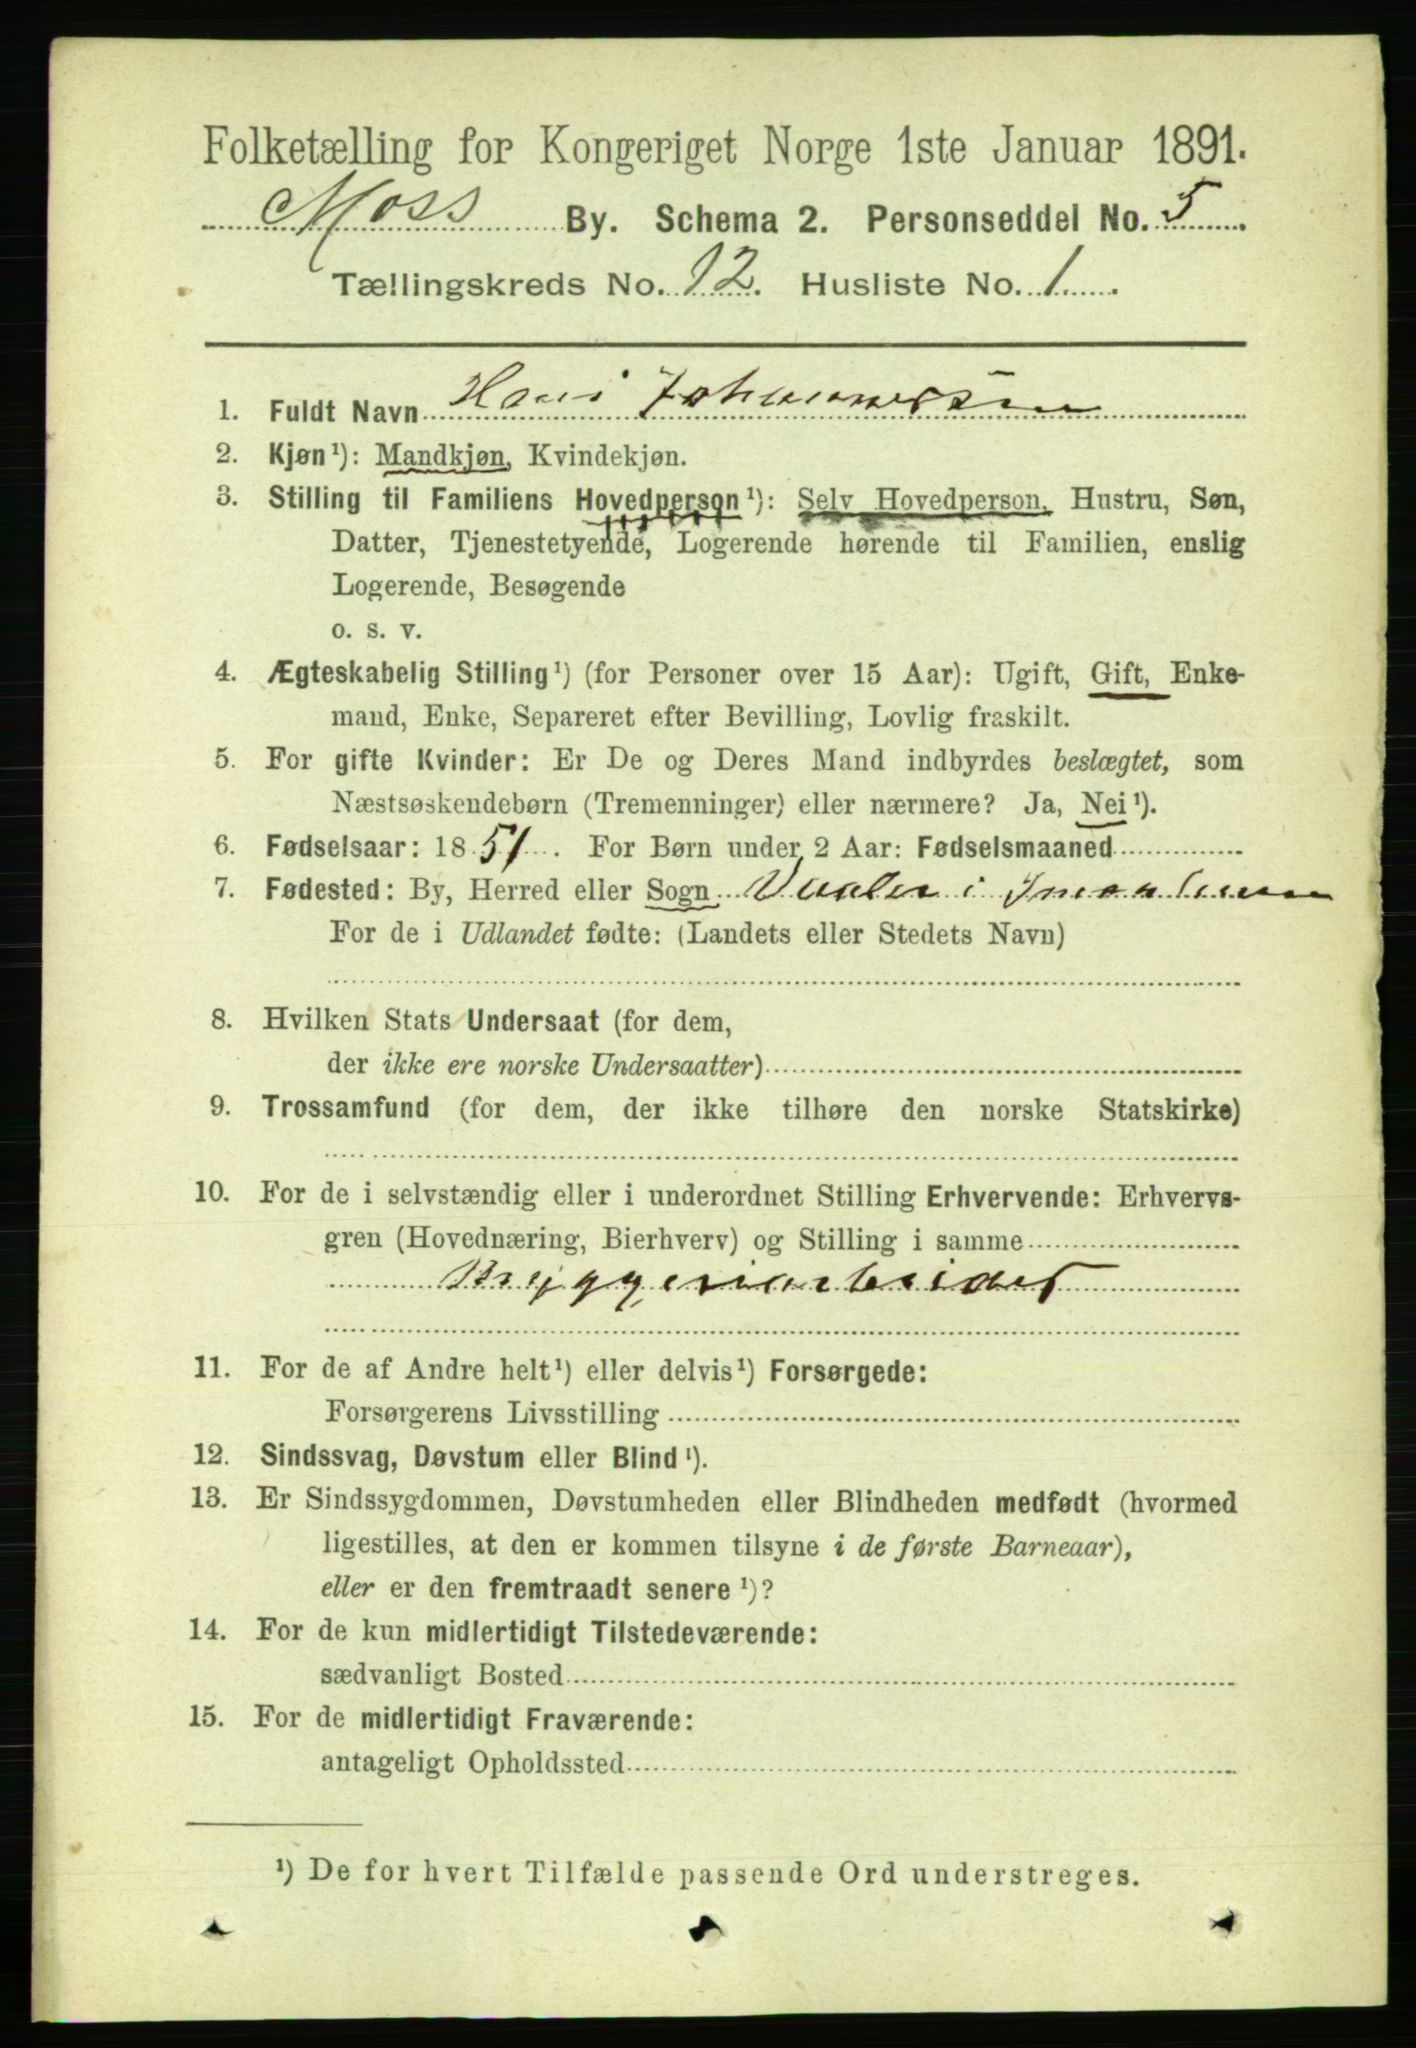 Folketælling for Kongeriget Norge 1ste Januar 1891.
Moss By. Schema 2. Personseddel No. 5
Tællingskreds No. 12. Husliste No. 1
1. Fuldt Navn Hans Johannessen
2. Kjøn¹): Mandkjøn, Kvindekjøn.
3. Stilling til Familiens Hovedperson¹): Selv Hovedperson, Hustru, Søn,
Datter, Tjenestetyende, Logerende hørende til Familien, enslig
Logerende, Besøgende
o. s. v.
4. Ægteskabelig Stilling¹) (for Personer over 15 Aar): Ugift, Gift, Enke-
mand, Enke, Separeret efter Bevilling, Lovlig fraskilt.
5. For gifte Kvinder: Er De og Deres Mand indbyrdes beslægtet, som
Næstsøskendebørn (Tremenninger) eller nærmere? Ja, Nei¹).
6. Fødselsaar: 1851. For Børn under 2 Aar: Fødselsmaaned
7. Fødested: By, Herred eller Sogn Vaaler i
For de i Udlandet fødte: (Landets eller Stedets Navn)
8. Hvilken Stats Undersaat (for dem,
der ikke ere norske Undersaatter)
9. Trossamfund (for dem, der ikke tilhøre den norske Statskirke)
10. For de i selvstændig eller i underordnet Stilling Erhvervende: Erhvervs-
gren (Hovednæring, Bierhverv) og Stilling i samme
Bryggeriarbeider
11. For de af Andre helt¹) eller delvis¹) Forsørgede:
Forsørgerens Livsstilling
12. Sindssvag, Døvstum eller Blind¹).
13. Er Sindssygdommen, Døvstumheden eller Blindheden medfødt (hvormed
ligestilles, at den er kommen tilsyne i de første Barneaar),
eller er den fremtraadt senere¹)?
14. For de kun midlertidigt Tilstedeværende:
sædvanligt Bosted
15. For de midlertidigt Fraværende:
antageligt Opholdssted
¹) De for hvert Tilfælde passende Ord understreges.